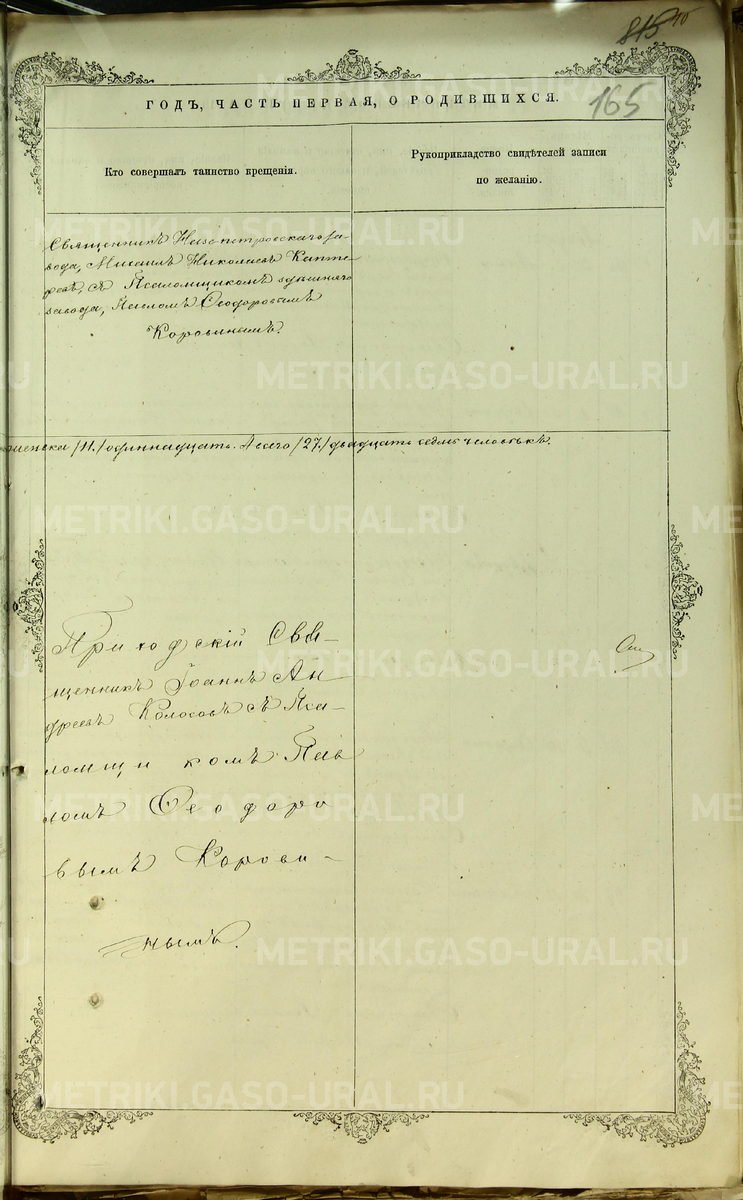 165
ГОДЪ, ЧАСТЬ ПЕРВАЯ, О РОДИВШИХСЯ.
Кто совершалъ таинство крещенія.
Рукоприкладство свидѣтелей записи
по желанію.
Священникъ Нязепетровскаго за-
вода, Михаилъ Николаевъ Капте-
ревъ, съ Псаломщикомъ здѣшняго
завода, Павломъ Ѳеодоровымъ
Коровинымъ.
/11./ одиннадцать. А всего /27./ двадцать седмь человѣкъ.
Приходскій Свя-
щенникъ Іоаннъ Ан-
дреевъ Колосовъ съ Пса-
ломщикомъ Пав
ломъ Ѳеодоро
вымъ Корови-
нымъ.
METRIKI.GASO-URAL.RU